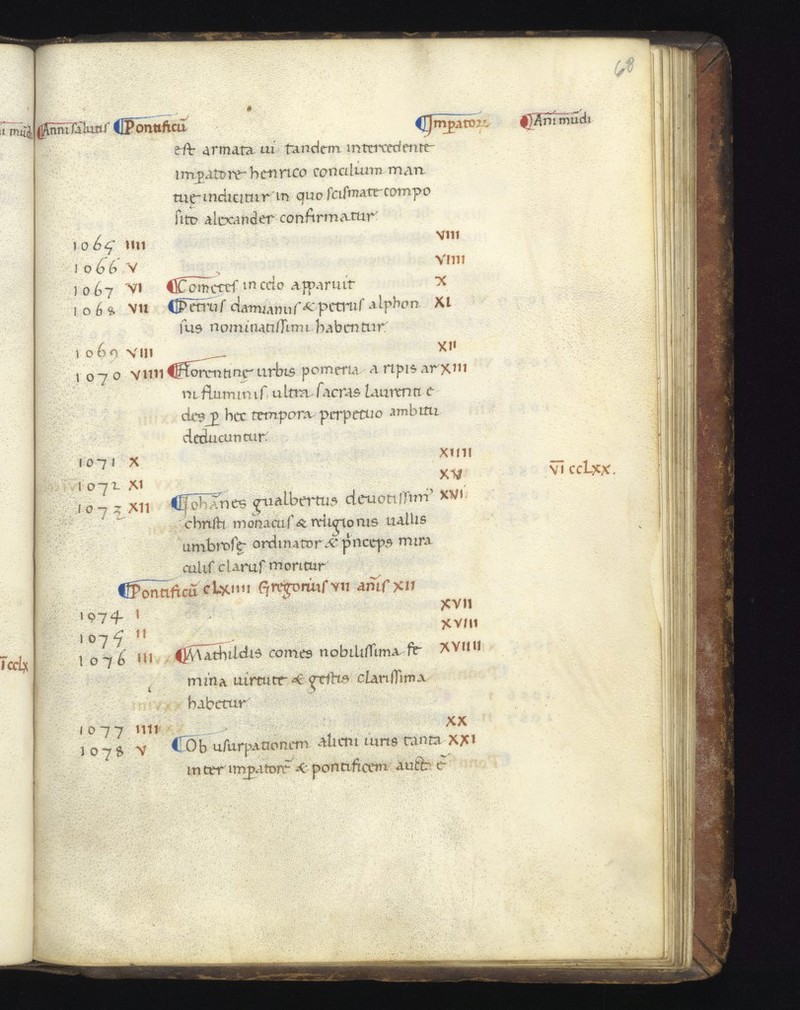 68
Anni salutis Pontificū Imperatorz Añi mūdi
est armata ui tandem intercedente
impatore henrico concilium man
tuę indicitur in quo scismate compo
sito alexander confirmatur
VIII
1065 IIII
VIIII
1066 V
1067 VI Cometes in celo apparuit X
1068 VII Petrus damianus & petrus alphon XI
sus nominatissimi habentur
XII
1069 VIII
1070 VIIII Florentinę urbis pomeria a ripis ar XIII
ni fluminis ultra sacras laurenti e
des p hec tempora perpetuo ambitu
deducuntur.
XIIII
1071 X VI ccLXX.
XV
1072 XI
1073 XII Johānes gualbertus deuotissim⁹ XVI
christi monacus & religionis uallis
umbrosę ordinator & pnceps mira
culis clarus moritur
Pontificū CLXIIII Gregorius VII añis XII
XVII
1074 I
XVIII
1075 II
1076 III Mathildis comes nobilissima fe XVIIII
mina uirtute & gestis clarissima
habetur
XX
1077 IIII
1078 V Ob usurpationem alieni iuris tanta XXI
inter impatorē & pontificem auct. ē